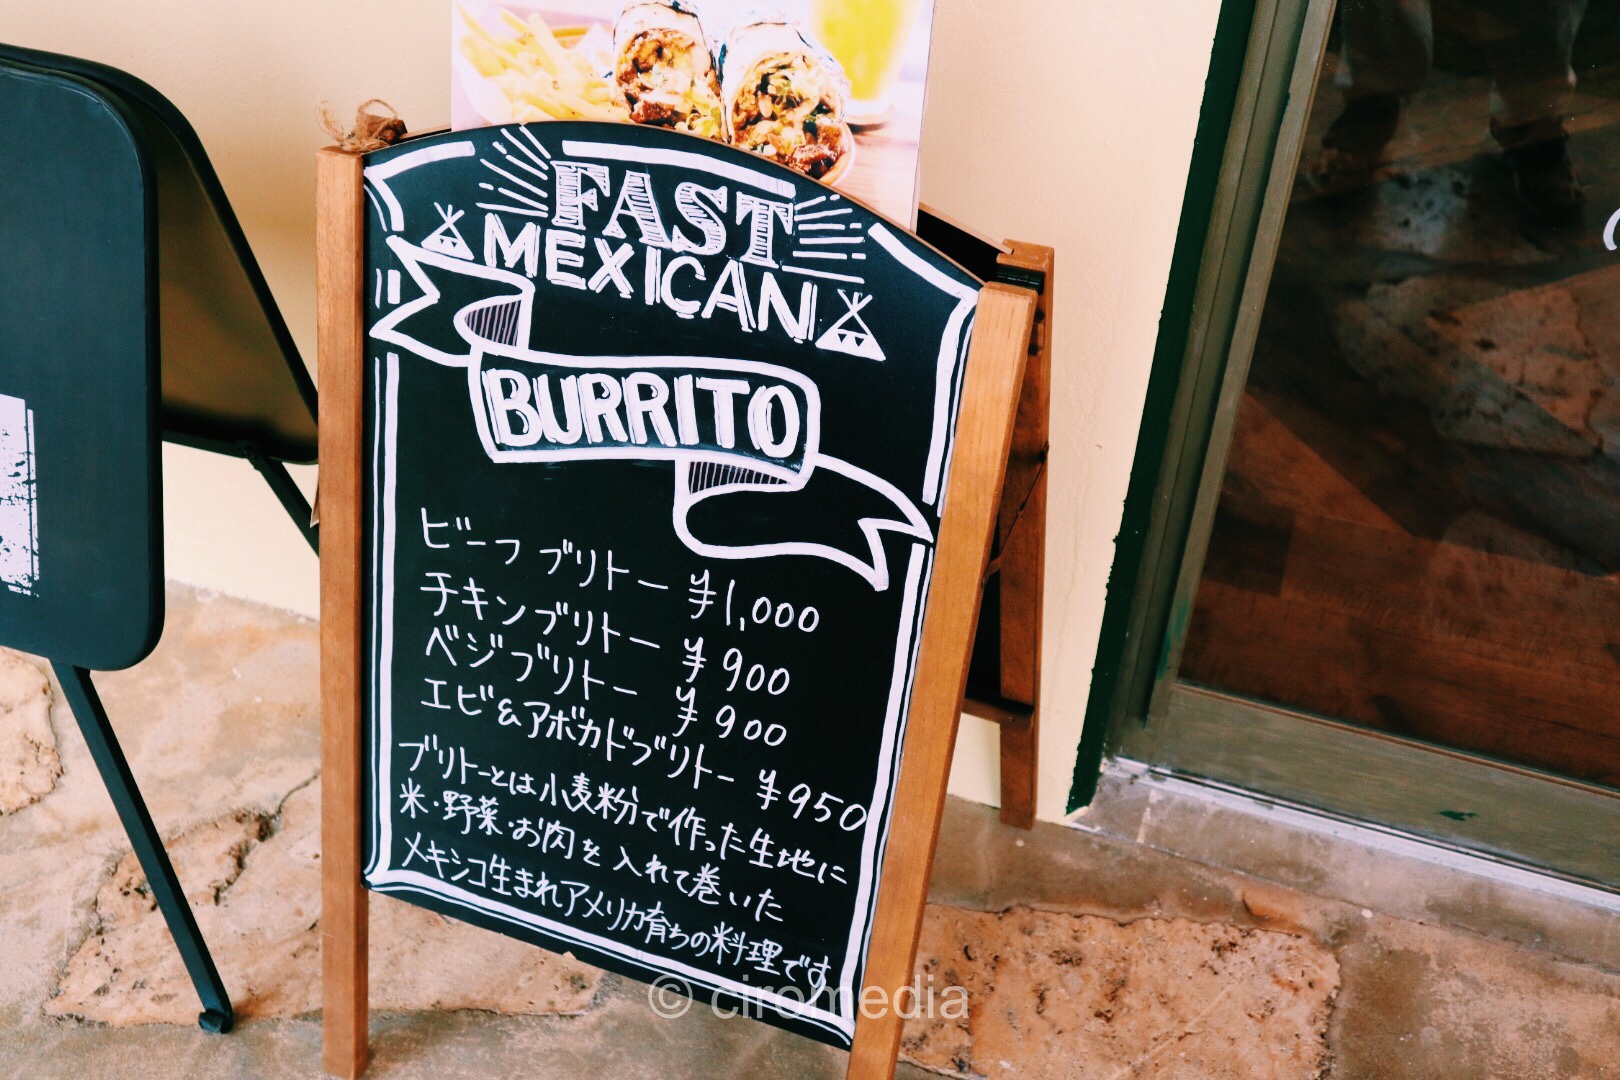 FAST
MEXICAN
BURRITO
ビーフブリトー ¥1,000
チキンブリトー ¥900
ベジブリトー ¥900
エビ&アボカドブリトー ¥950
ブリトーとは小麦粉で作った生地に
米・野菜・お肉を入れて巻いた
メキシコ生まれアメリカ育ちの料理です
© ciromedia